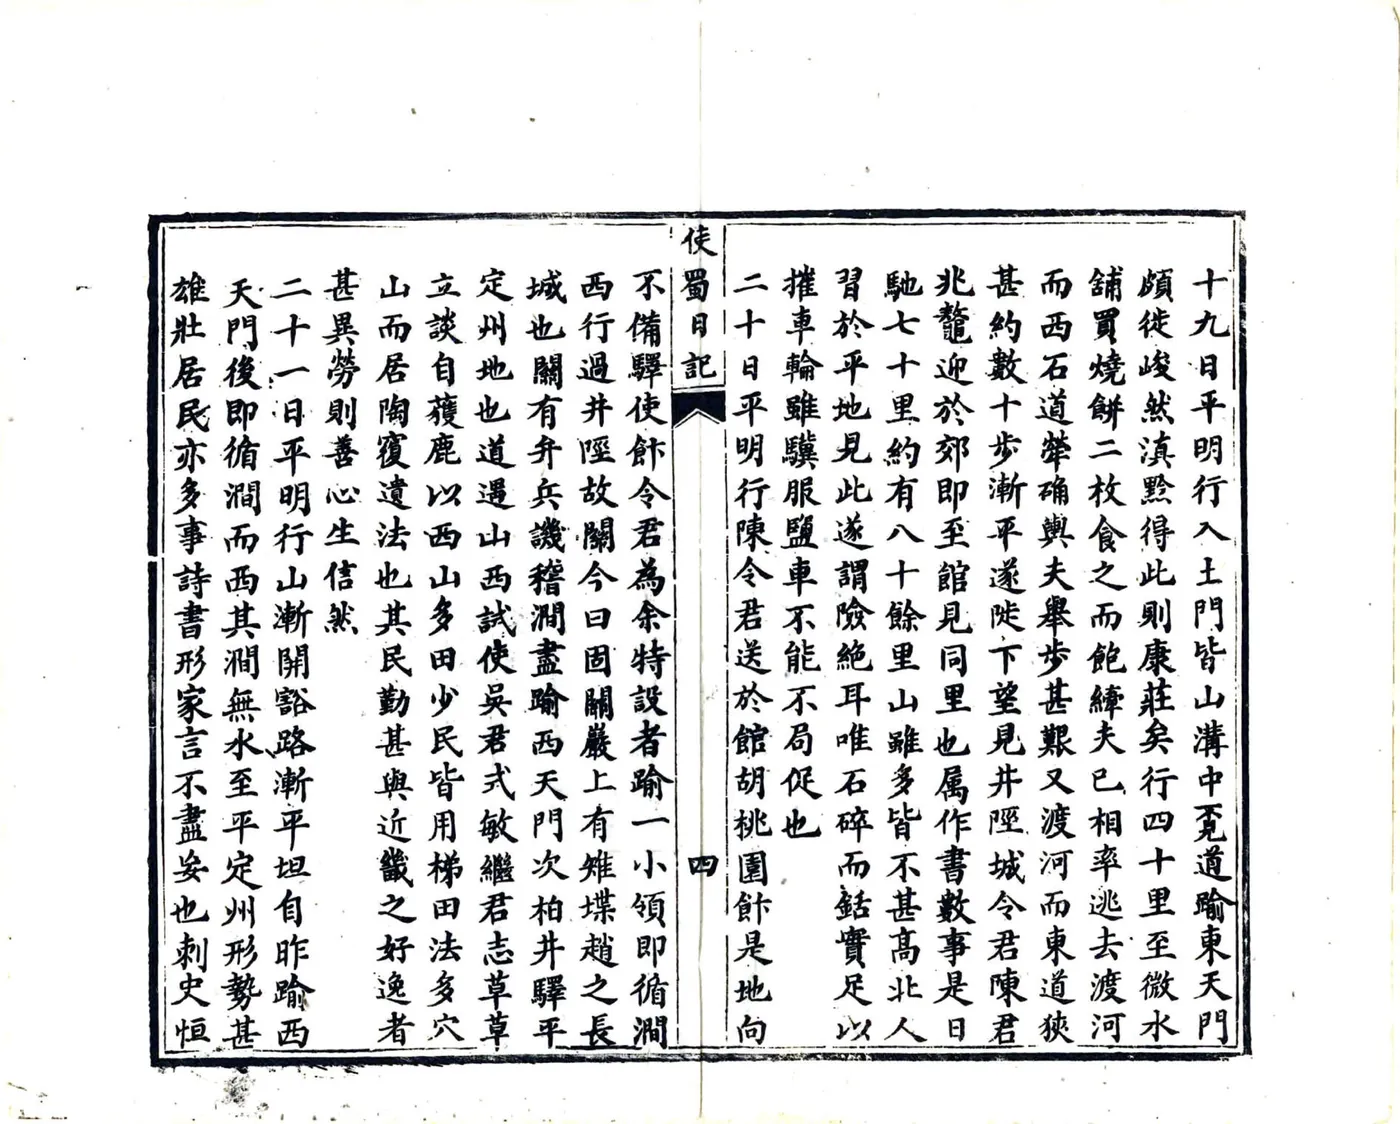 十九日平明行入土門皆山溝中覔道踰東天門
頗徙峻然滇黔得此則康莊矣行四十里至微水
舖買燒餅二枚食之而飽縴夫已相率逃去渡河
而西石道犖确輿夫舉步甚艱又渡河而東道狹
甚約數十步漸平遂陡下望見井陘城令君陳君
兆鼇迎於郊即至館見同里也属作書數事是日
馳七十里約有八十餘里山雖多皆不甚高北人
習於平地見此遂謂險絶耳唯石碎而銛實足以
摧車輪雖驥服鹽車不能不局促也
二十日平明行陳令君送於館胡桃園飰是地向
使蜀日記
四
不備驛使飰令君為余特設者踰一小領即循澗
西行過井陘故關今曰固關嚴上有雉堞趙之長
城也關有弁兵譏稽澗盡踰西天門次柏井驛平
定州地也道遇山西試使吳君式敏繼君志草草
立談自獲鹿以西山多田少民皆用梯田法多穴
山而居陶復遺法也其民勤甚與近畿之好逸者
甚異勞則善心生信然
二十一日平明行山漸開豁路漸平坦自昨踰西
天門後即循澗而西其澗無水至平定州形勢甚
雄壯居民亦多事詩書形家言不盡妄也刺史恒